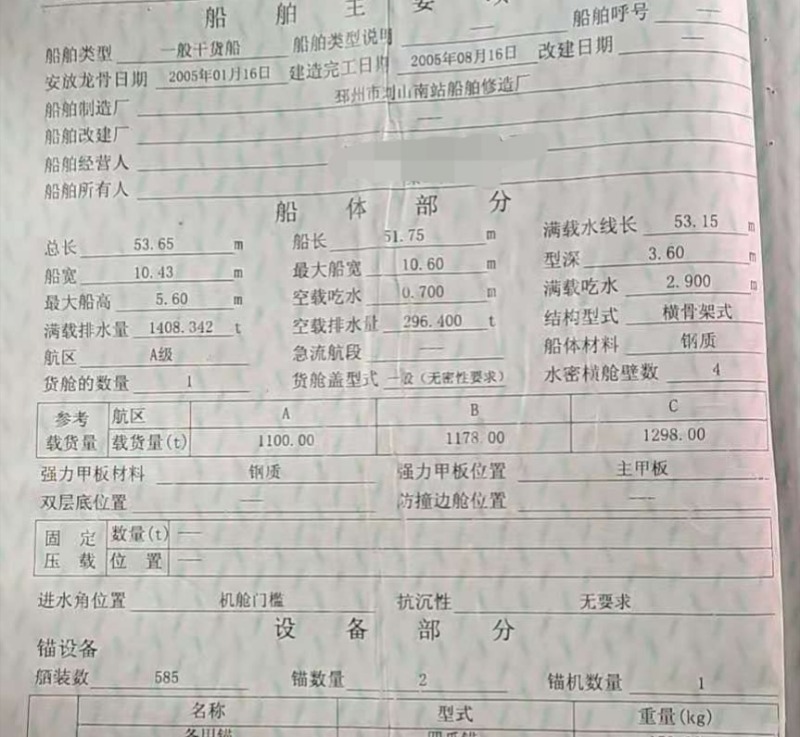 船舶主要项
船舶呼号 —
船舶类型 一般干货船 船舶类型说明 —
安放龙骨日期 2005年01月16日 建造完工日期 2005年08月16日 改建日期 —
船舶制造厂 邳州市刘山南站船舶修造厂
船舶改建厂 —
船舶经营人
船舶所有人
船体部分
总长 53.65 m 船长 51.75 m 满载水线长 53.15 m
船宽 10.43 m 最大船宽 10.60 m 型深 3.60 m
最大船高 5.60 m 空载吃水 0.700 m 满载吃水 2.900 m
满载排水量 1408.342 t 空载排水量 296.400 t 结构型式 横骨架式
航区 A级 急流航段 — 船体材料 钢质
货舱的数量 1 货舱盖型式 一般(无密性要求) 水密横舱壁数 4
参考 航区 A B C
载货量 载货量(t) 1100.00 1178.00 1298.00
强力甲板材料 钢质 强力甲板位置 主甲板
双层底位置 — 防撞边舱位置 —
固定 数量(t) —
压载 位置 —
进水角位置 机舱门槛 抗沉性 无要求
设备部分
锚设备
舾装数 585 锚数量 2 锚机数量 1
名称 型式 重量(kg)